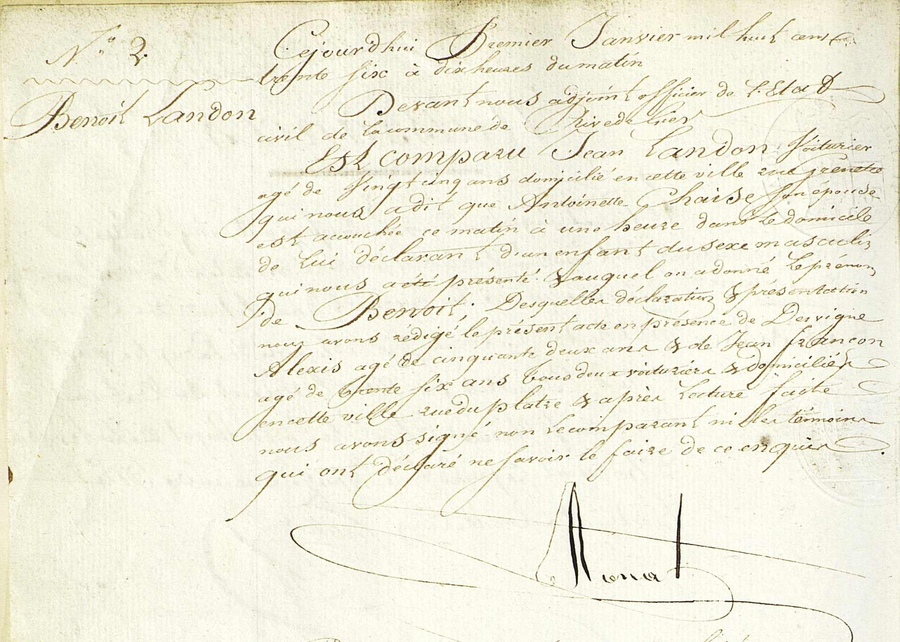 N.o 2.
Benoit Landon
Cejourdhui Premier Janvier mil huit cent
trente six à dix heures du matin
Devant nous adjoint officier de l'Etat
civil de la commune de Rivedegier
Est comparu Jean Landon, Voiturier
agé de vingt cinq ans domicilié en cette ville rue Grenette
qui nous a dit que Antoinette Chaise son epouse
est accouchée ce matin à une heure dans le domicile
de lui déclarant d'un enfant du sexe masculin
qui nous a été présenté & auquel on a donné le prénom
de Benoit; Desquelles déclaration & présentation
nous avons rédigé le présent acte en présence de Dervigue
Alexis agé de cinquante deux ans & de Jean françon
agé de trente six ans tous deux voituriers & domiciliés
en cette ville rue du platre & après lecture faite
nous avons signé non le comparant ni les témoins
qui ont déclaré ne savoir le faire de ce enquis.